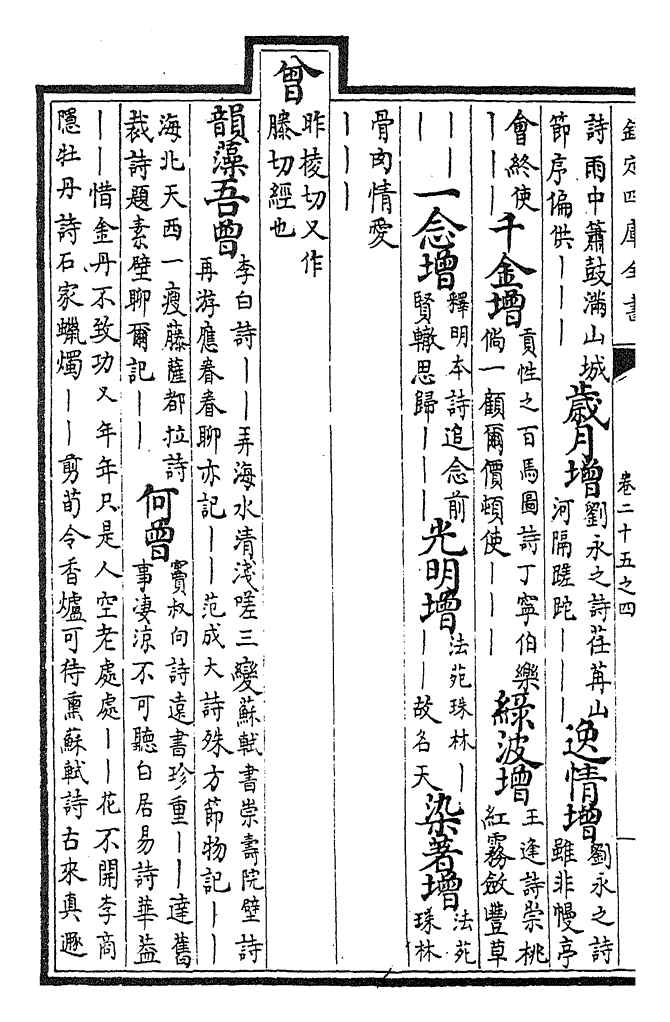 欽定四庫全書 卷二十五之四
詩雨中簫鼓滿山城節序偏供｜｜｜歲月增劉永之詩荏苒山河隔蹉跎｜｜｜逸情增劉永之詩雖非幔亭
會終使｜｜｜千金增貢性之百馬圖詩丁寧伯樂倘一顧爾價頓使｜｜｜綠波增王逢詩崇桃紅霧斂豐草
｜｜｜一念增釋明本詩追念前賢轍思歸｜｜｜光明增法苑珠林｜｜｜故名天染著增法苑珠林
骨肉情愛｜｜｜
曾昨棱切又作滕切經也
韻藻吾曾李白詩｜｜弄海水清淺嗟三變蘇軾書崇壽院壁詩再游應眷眷聊亦記｜｜范成大詩殊方節物記｜｜
海北天西一瘦藤薩都拉詩裁詩題素壁聊爾記｜｜何曾竇叔向詩遠書珍重｜｜達舊事凄涼不可聽白居易詩華益
｜｜惜金丹不致功又年年只是人空老處處｜｜花不開李商隱牡丹詩石家蠟燭｜｜剪荀令香爐可待熏蘇軾詩古來真遯